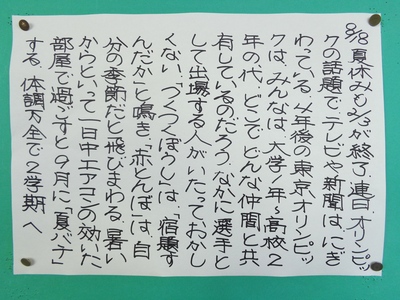 8/18 夏休みも2/3が終了.連日、オリンピッ
クの話題で、テレビや新聞は、にぎ
わっている.4年後の東京、オリンピッ
クは、みんなは、大学1年~高校2
年の代、どこで、どんな仲間と共
有しているのだろう.なかに選手と
して出場する人がいたっておかし
くない.「つくつくぼうし」は、「宿題す
んだか」と鳴き、「赤とんぼ」は、自
分の季節だと飛びまわる.暑い
からといって一日中エアコンの効いた
部屋で過ごすと9月に「夏バテ」
する.体調万全で2学期へ